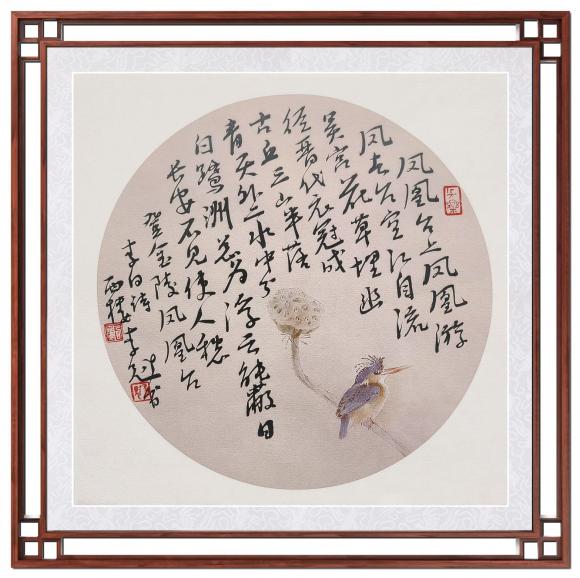 凤凰台上凤凰游
凤去台空江自流
吴宫花草埋幽
径晋代衣冠成
古丘三山半落
青天外二水中分
白鹭洲总为浮云能蔽日
长安不见使人愁
登金陵凤凰台
李白诗
李 书